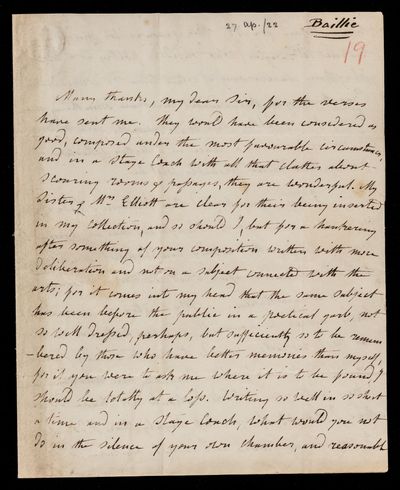 27 Ap./22
Baillie
19
Many thanks, my dear Sir, for the verses
have sent me. They would have been considered as
good, composed under the most favourable circumstances,
and in a Stage Coach with all that clatter about
scouring rooms & passages, they are wonderful. My
Sister & Mrs Elliott are clear for their being inserted
in my collection, and so should I, but for a hankering
after something of your composition written with more
deliberation and not on a subject connected with the
arts; for it comes into my head that the same subject
has been before the public in a poetical garb, not
so well dressed, perhaps, but sufficiently so to be remem
-bered by those who have better memories than myself,
for if you were to ask me where it is to be found I
should be totally at a loss. Writing so well in so short
a time and in a Stage Coach, what would you not
do in the silence of your own chamber, and reasonable